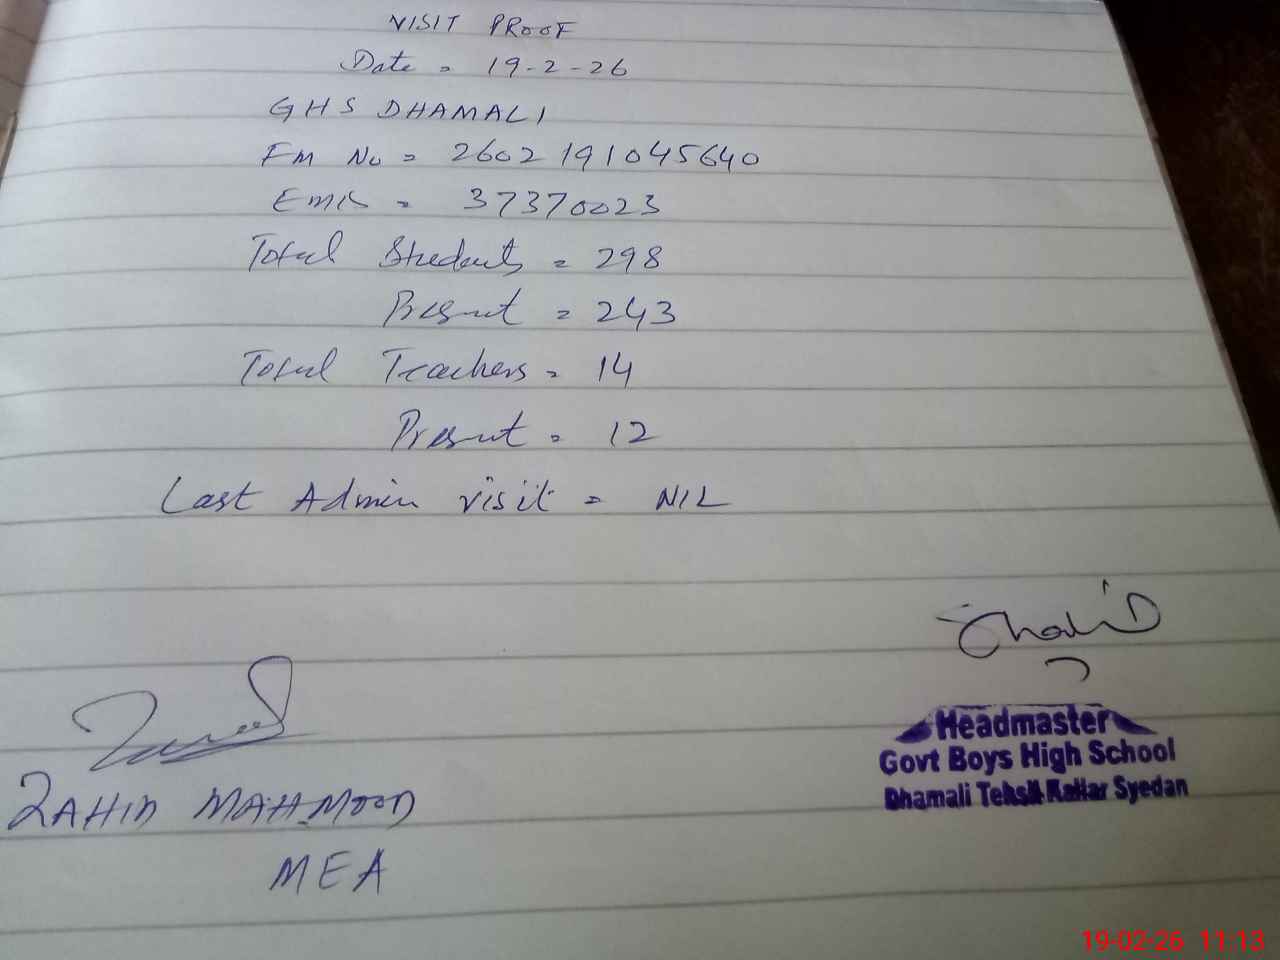 VISIT PROOF
Date = 19-2-26
GHS DHAMALI
FM No = 2602191045640
Emis = 37370023
Total Students = 298
Present = 243
Total Teachers = 14
Present = 12
Last Admin visit = NIL
Headmaster
Govt Boys High School
Dhamali Tehsil Kallar Syedan
ZAHID MAHMOOD
MEA
19-02-26 11:13